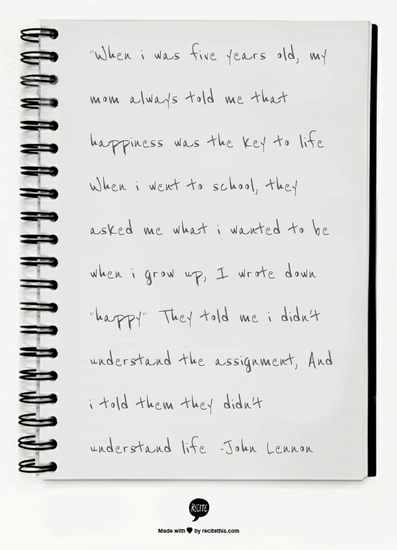 "When i was five years old, my
mom always told me that
happiness was the key to life
When i went to school, they
asked me what i wanted to be
when i grow up, I wrote down
"happy". They told me i didn't
understand the assignment, And
i told them they didn't
understand life -John Lennon
RECITE
Made with ♥ by recitethis.com